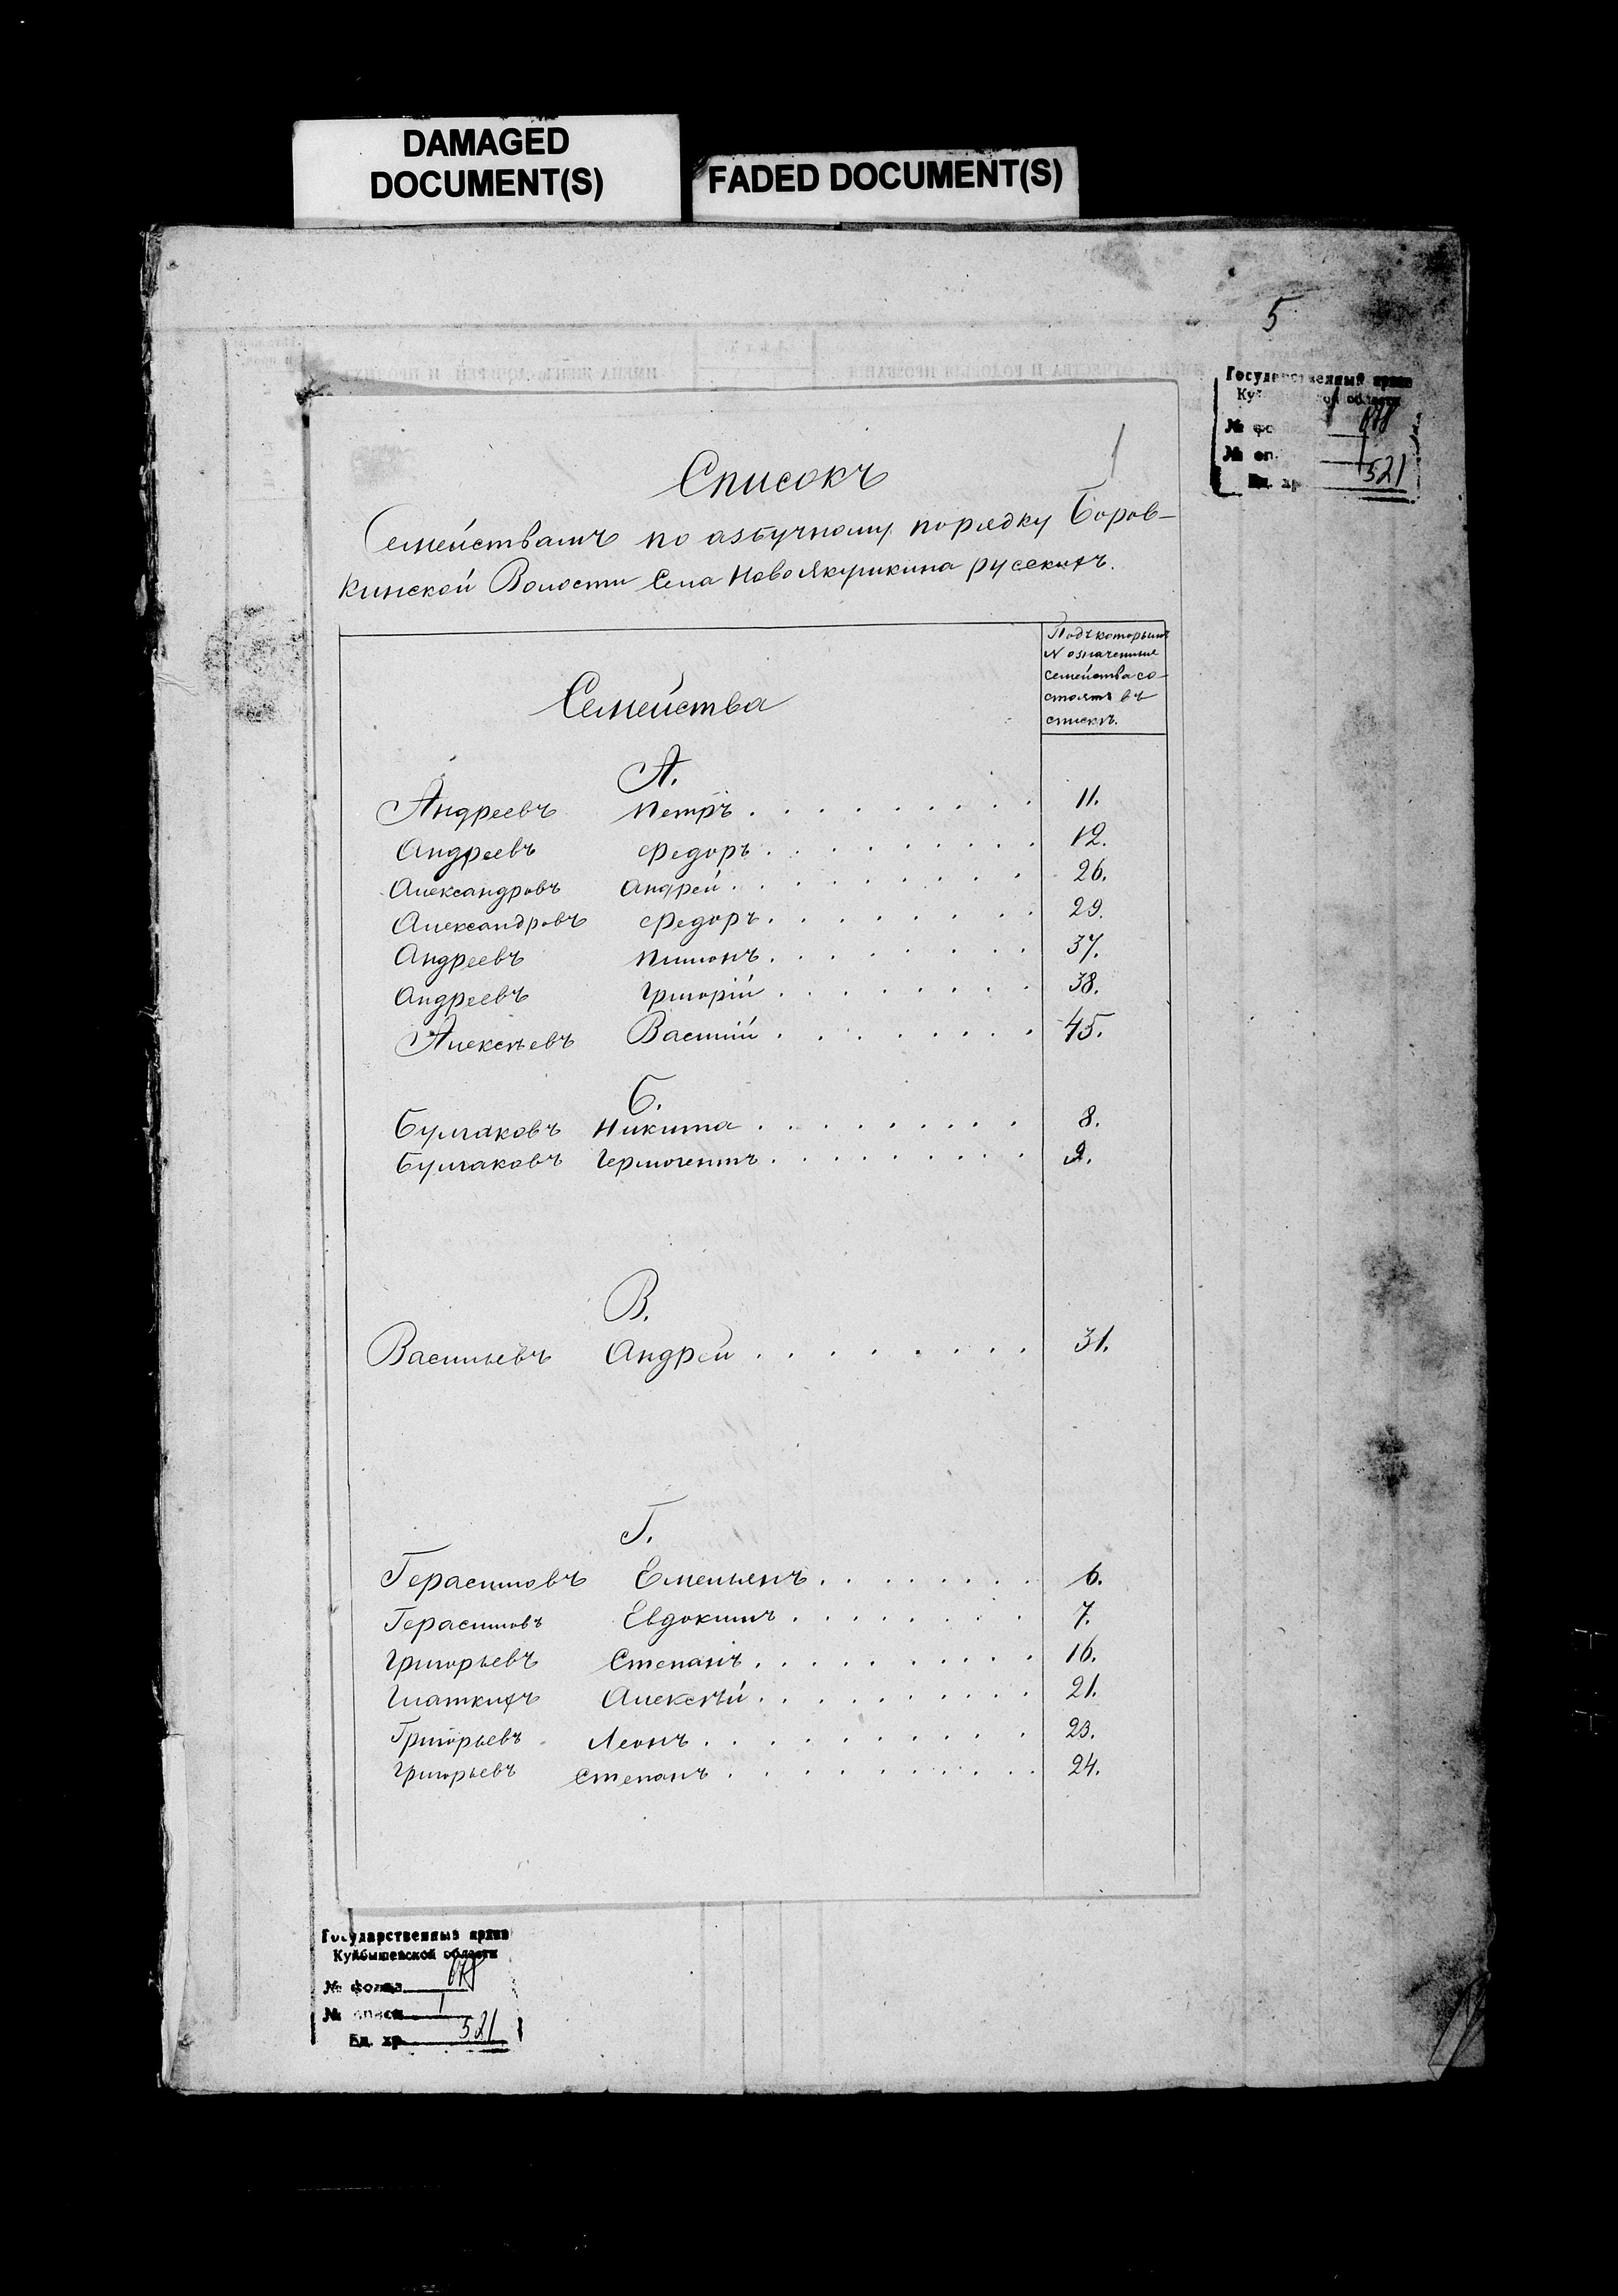 DAMAGED
DOCUMENT(S)
FADED DOCUMENT(S)
5
Государственный архив
Ку ой области
№ фо 678
№ оп. 1
Ед. хр 521
1
Списокъ
Семействамъ по азбучному порядку Боров-
кинской Волости Села Новоякушкина русскихъ.
Семейства
Подъ которымъ
N означенные
семейства со-
стоятъ въ
спискѣ.
А.
Андреевъ Петръ . . . . . . . . 11.
Андреевъ Федоръ . . . . . . . . 12.
Александровъ Андрей . . . . . . . . 26.
Александровъ Федоръ . . . . . . . . 29.
Андреевъ Пимонъ . . . . . . . . 37.
Андреевъ Григорій . . . . . . . . 38.
Алексѣевъ Василій . . . . . . . . 45.
Б.
Булгаковъ Никита . . . . . . . . 8.
Булгаковъ Гермогентъ . . . . . . . . 9.
В.
Васильевъ Андрей . . . . . . . . 31.
Г.
Герасимовъ Емельянъ . . . . . . . . 6.
Герасимовъ Евдокимъ . . . . . . . 7.
Григорьевъ Степанъ . . . . . . . . . 16.
Глаткихъ Алексѣй . . . . . . . . . 21.
Григорьевъ Леонъ . . . . . . . . . 23.
Григорьевъ Степанъ . . . . . . . . . 24.
Государственный архив
Куйбышевской области
№ фонда 678
№ описи 1
Ед. хр. 521